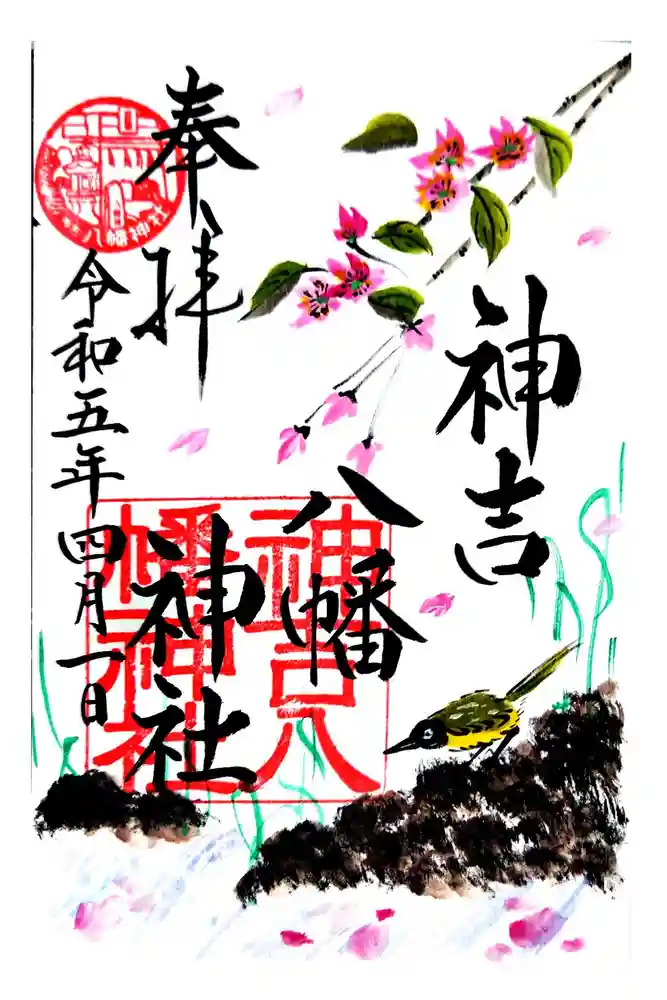 神吉
八幡
神社
奉拝
令和五年四月一日
神吉八
幡神社
八幡神社